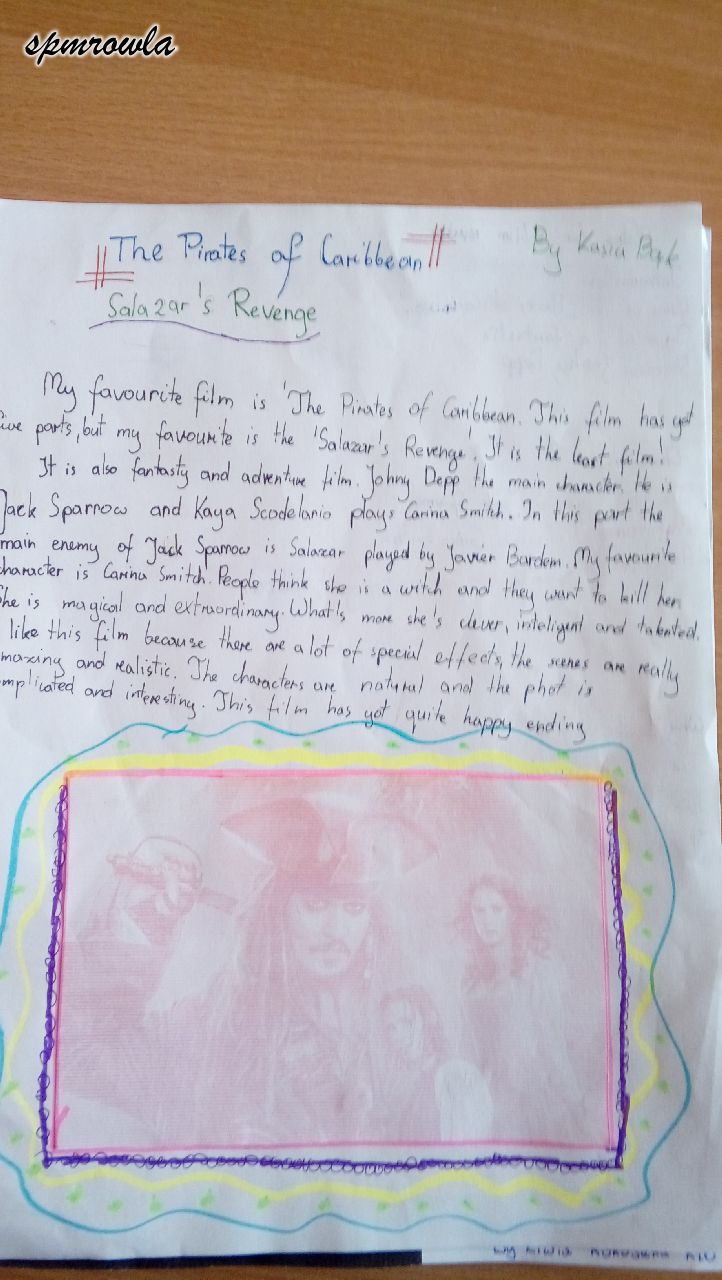 spmrowla
The Pirates of Caribbean
By Kasia
Salazar's Revenge
My favourite film is 'The Pirates of Caribbean. This film has got
ive parts, but my favourite is the 'Salazar's Revenge'. It is the least film!
It is also fantasty and adventure film. Johny Depp the main character. He is
Jack Sparrow and Kaya Scodelario plays Carina Smitch. In this part the
main enemy of Jack Sparrow is Salazar played by Javier Bardem. My favourite
character is Carina Smitch. People think she is a witch and they want to kill her.
he is magical and extraordinary. What's more she's clever, inteligent and talented.
like this film because there are a lot of special effects, the scenes are really
mazing and realistic. The characters are natural and the phot is
mplicated and interesting. This film has got quite happy ending